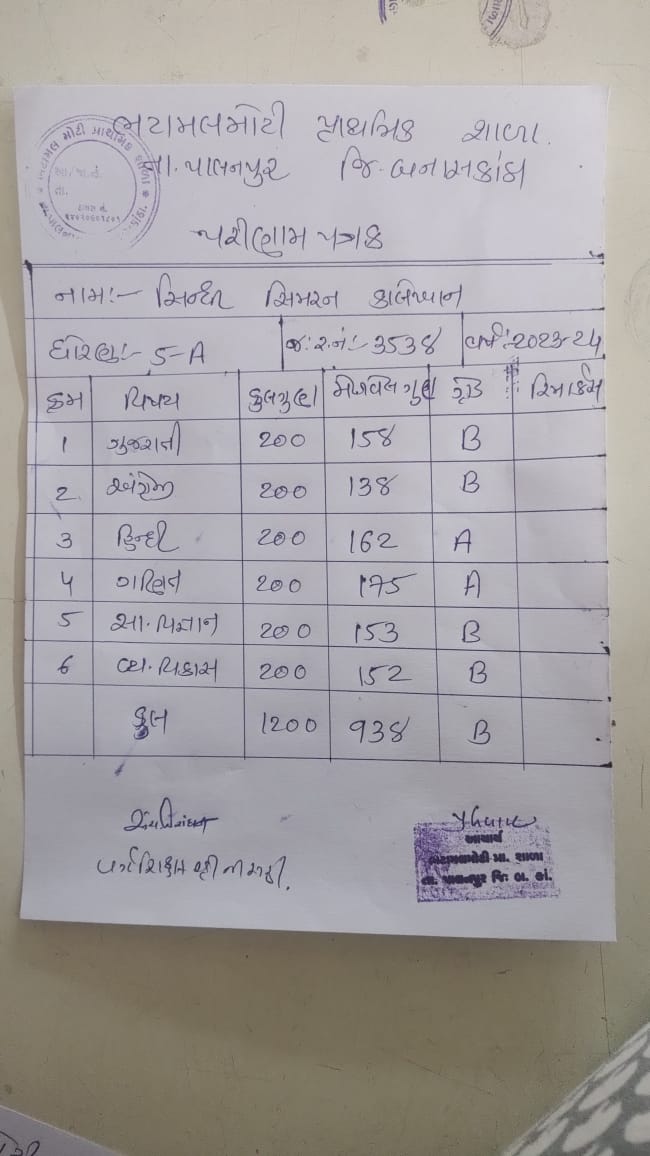 ભટામલમોટી પ્રાથમિક શાળા.
તા. પાલનપુર જિ. બનાસકાંઠા
પરીણામ પત્રક
નામઃ- સિન્ધી સિમરન કાલેખાન
ધોરણઃ- 5-A જ.ર.નંઃ- 3538 વર્ષઃ-2023-24
ક્રમ વિષય કુલગુણ મેળવેલ ગુણ ગ્રેડ રિમાર્કસ
1 ગુજરાતી 200 158 B
2 અંગ્રેજી 200 138 B
3 હિન્દી 200 162 A
4 ગણિત 200 175 A
5 સા. વિજ્ઞાન 200 153 B
6 વ્ય. વિકાસ 200 152 B
કુલ 1200 938 B
વર્ગશિક્ષકશ્રીની સહી.
આચાર્ય
ભટામલમોટી પ્રા. શાળા
તા. પાલનપુર જિ. બ. કાં.